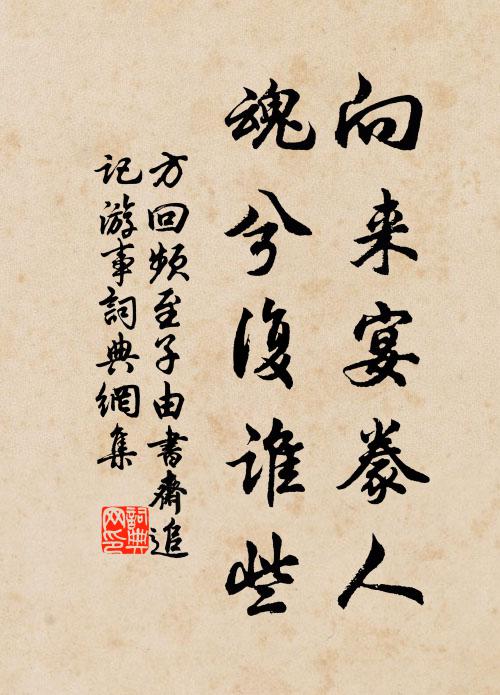 向来宴豢人
魂兮復谁些
方回频至子由書齋追
记游事詞典網集
詞典网印